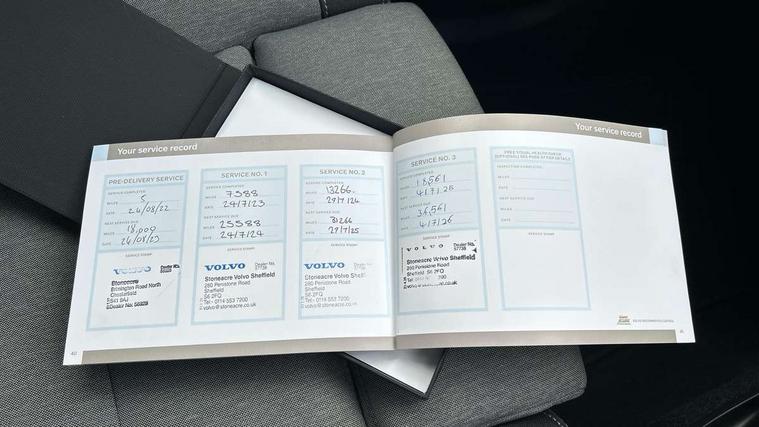 Your service record
PRE-DELIVERY SERVICE
SERVICE COMPLETED
MILES 5
DATE 24/08/22
NEXT SERVICE DUE
MILES 18,000
DATE 24/08/23
SERVICE STAMP
VOLVO
Stoneacre
Brimington Road North
Chesterfield
S41 9AJ
Dealer No:
SERVICE NO. 1
SERVICE COMPLETED
MILES 7588
DATE 24/7/23
NEXT SERVICE DUE
MILES 25588
DATE 24/7/24
SERVICE STAMP
VOLVO Dealer No.
Stoneacre Volvo Sheffield
280 Penistone Road
Sheffield
S6 2FQ
Tel - 0114 553 7200
volvo@stoneacre.co.uk
SERVICE NO. 2
SERVICE COMPLETED
MILES 13266
DATE 29/7/24
NEXT SERVICE DUE
MILES 31266
DATE 29/7/25
SERVICE STAMP
VOLVO Dealer No.
Stoneacre Volvo Sheffield
280 Penistone Road
Sheffield
S6 2FQ
Tel - 0114 553 7200
volvo@stoneacre.co.uk
Your service record
SERVICE NO. 3
SERVICE COMPLETED
MILES 18,561
DATE 4/7/25
NEXT SERVICE DUE
MILES 36,561
DATE 4/7/26
SERVICE STAMP
VOLVO Dealer No.
Stoneacre Volvo Sheffield
280 Penistone Road
Sheffield
S6 2FQ
FREE VISUAL HEALTH CHECK
INSPECTION COMPLETED
MILES
DATE
NEXT SERVICE DUE
MILES
DATE
SERVICE STAMP
40
41